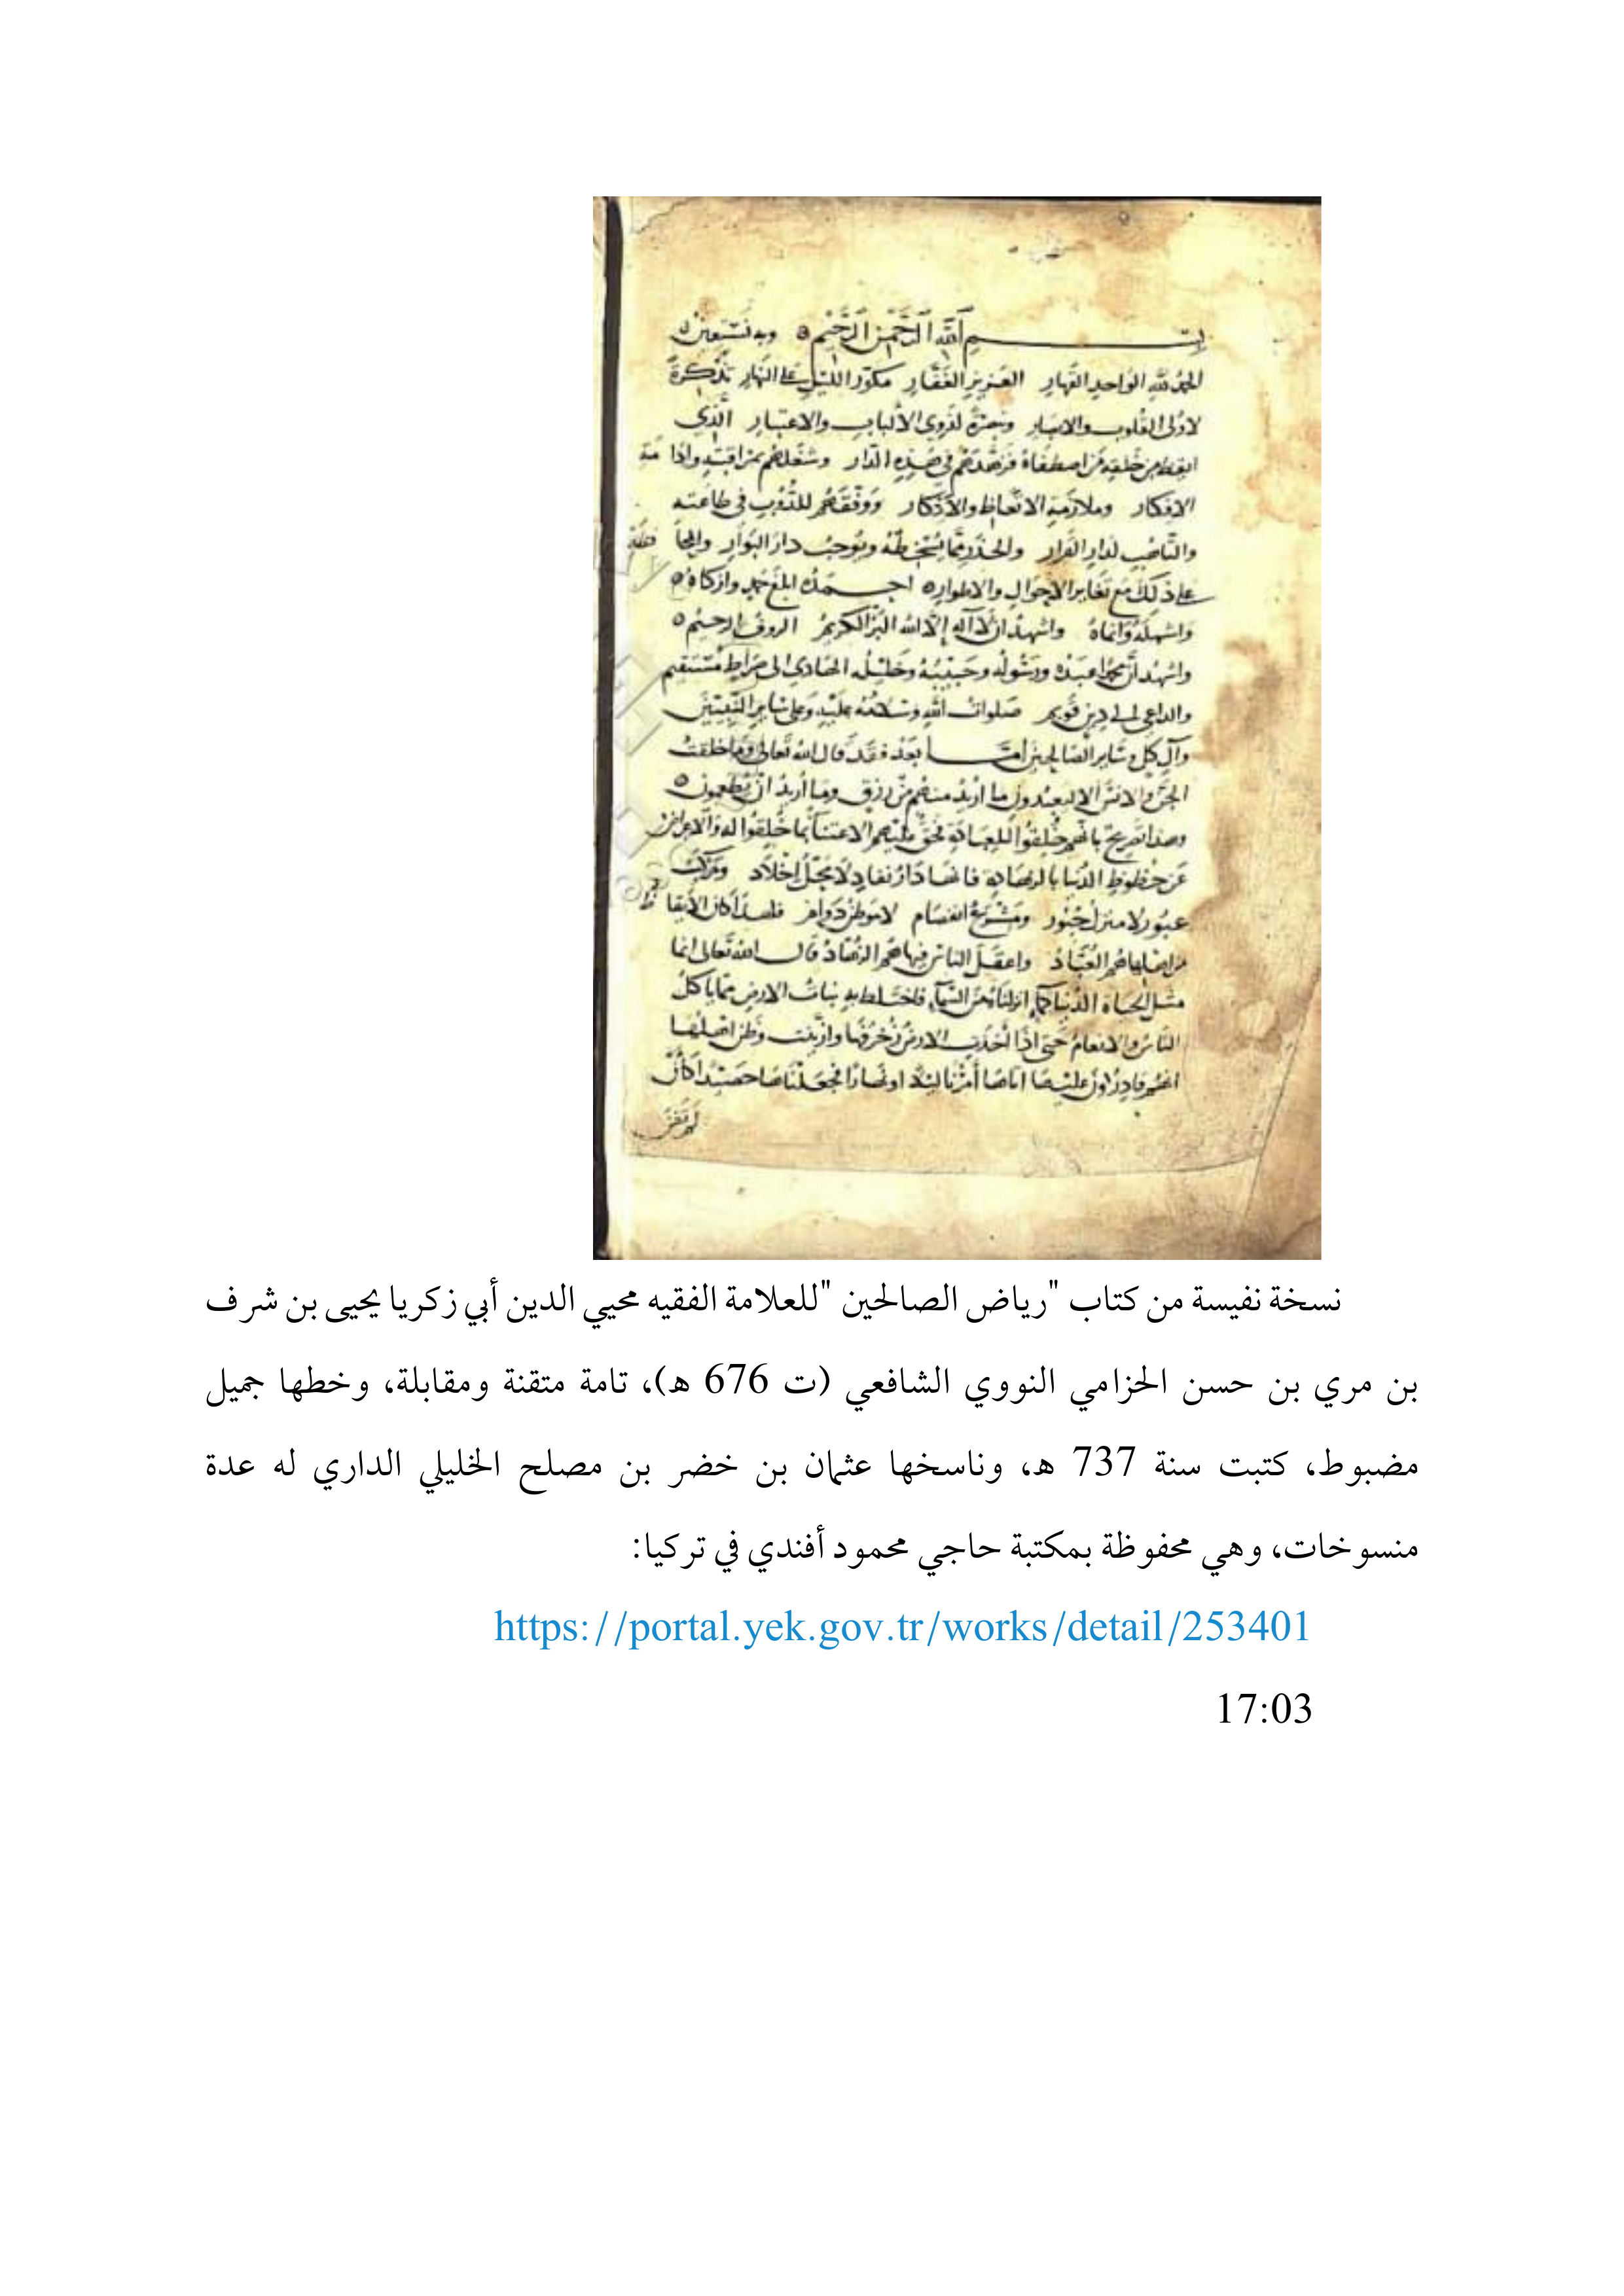 بسم الله الرَّحْمٰنِ الرَّحِيْمِ وبه نَسْتَعِيْن
الحمد لله الواحد القهار العزيز الغفار مكور الليل على النهار تذكرة
لاولى القلوب والابصار وتبصرة لذوي الألباب والاعتبار الذي
ايقظ من خلقه من اصطفاه فزهدهم في هذه الدار وشغلهم بمراقبته وادامة
الافكار وملازمة الاتعاظ والاذكار ووفقهم للدؤب في طاعته
والتاهب لدار القرار والحذر مما يسخطه ويوجب دار البوار والمحافظة
على ذلك مع تغاير الاحوال والاطوار احمده ابلغ حمد وازكاه
واشمله وانماه واشهد ان لا اله إلا الله البر الكريم الروف الرحيم
واشهد ان محمدا عبده ورسوله وحبيبه وخليله الهادي الى صراط مستقيم
والداعي الى دين قويم صلوات الله وسلامه عليه وعلى ساير النبيين
وآل كل وساير الصالحين أما بعد فقد قال الله تعالى وما خلقت
الجن والانس الا ليعبدون ما اريد منهم من رزق وما أريد ان يطعمون
وهذا تصريح بانهم خلقوا للعبادة فحق عليهم الاعتناء بما خلقوا له والاعراض
عن حظوظ الدنيا بالزهادة فانها دار نفاد لا محل اخلاد ومركب
عبور لا منزل حبور ومشرع انفصام لا موطن دوام فلهذا كان الأيقاظ
من اهلها هم العباد واعقل الناس فيها هم الزهاد قال الله تعالى انما
مثل الحياة الدنيا كماء انزلناه من السماء فاختلط به نبات الارض مما ياكل
الناس والانعام حتى اذا أخذت الارض زخرفها وازينت وظن اهلها
انهم قادرون عليها اتاها أمرنا ليلا او نهارا فجعلناها حصيدا كأن
لم تغن
نسخة نفيسة من كتاب "رياض الصالحين "للعلامة الفقيه محيي الدين أبي زكريا يحيى بن شرف
بن مري بن حسن الحزامي النووي الشافعي (ت 676 هـ)، تامة متقنة ومقابلة، وخطها جميل
مضبوط، كتبت سنة 737 هـ، وناسخها عثمان بن خضر بن مصلح الخليلي الداري له عدة
منسوخات، وهي محفوظة بمكتبة حاجي محمود أفندي في تركيا:
https://portal.yek.gov.tr/works/detail/253401
17:03